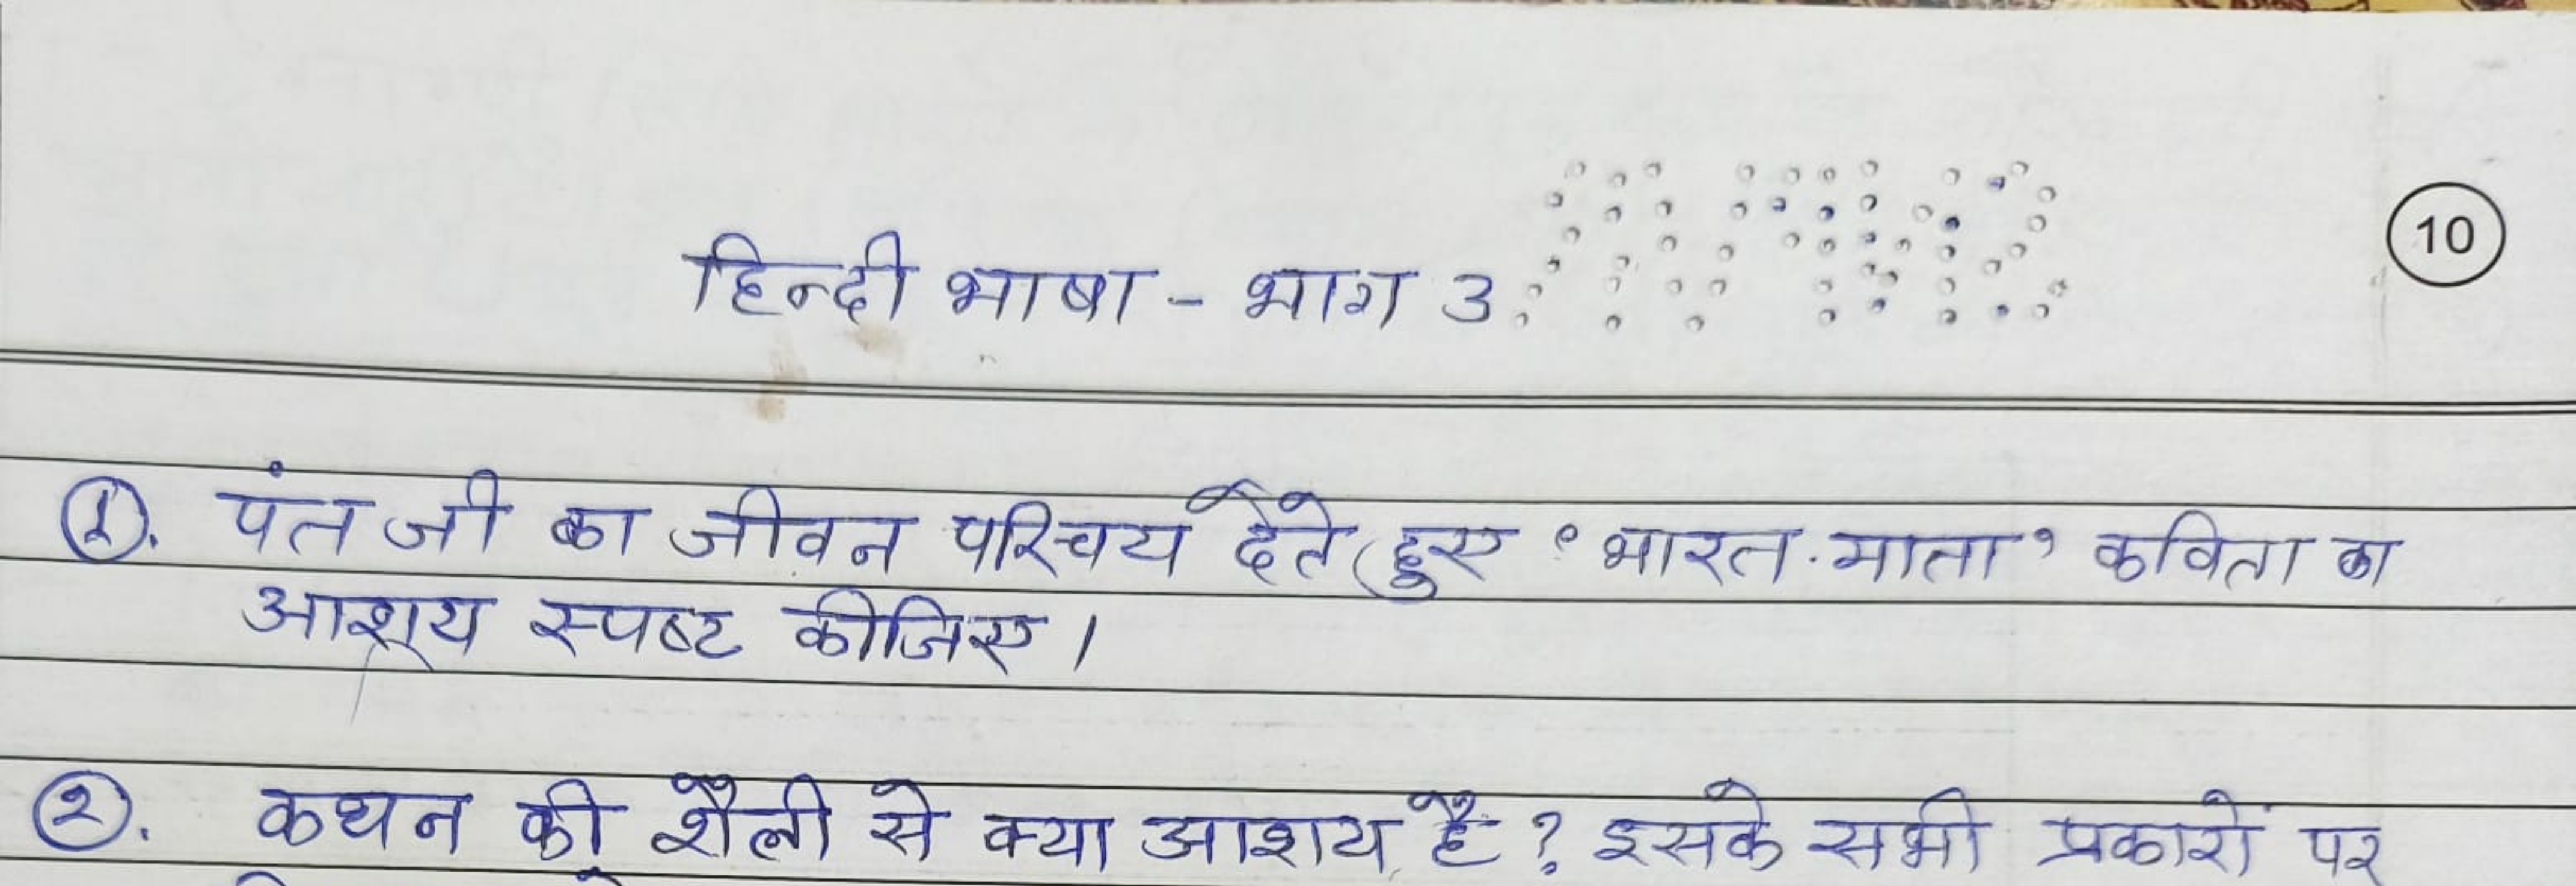 हिन्दी भाषा - भाग 3
10
①. पंत जी का जीवन परिचय देते हुए 'भारत माता' कविता का
आशय स्पष्ट कीजिए।
②. कथन की शैली से क्या आशय है? इसके सभी प्रकारों पर